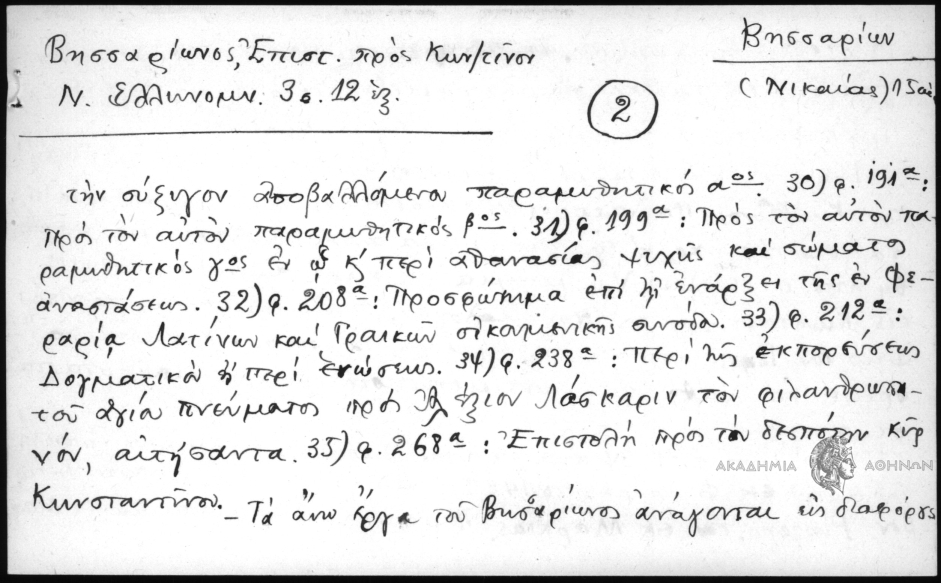 Βησσαρίωνος, Ἐπιστ. πρὸς Κων/τῖνον
Βησσαρίων
Ν. Ἑλληνομν. 3ος. 12 ἑξ.
(Νικαίας) 15ου αἰ.
2
τὴν σύζυγον ἀποβαλλόμενον παραμυθητικός αος. 30) φ. 191α:
Πρὸς τὸν αὐτὸν παραμυθητικός βος. 31) φ. 199α: Πρὸς τὸν αὐτὸν πα-
ραμυθητικός γος ἐν ᾧ κ' περὶ ἀθανασίας ψυχῆς καὶ σώματος
ἀναστάσεως. 32) φ. 208α: Προσφώνημα ἐπὶ τῇ ἐνάρξει τῆς ἐν Φε-
ραρίᾳ Λατίνων καὶ Γραικῶν οἰκουμενικῆς συνόδου. 33) φ. 212α:
Δογματικὸν ἢ περὶ ἑνώσεως. 34) φ. 238α: Περὶ τῆς ἐκπορεύσεως
τοῦ ἁγίου πνεύματος πρὸς Ἀλέξιον Λάσκαριν τὸν φιλανθρωπι-
νόν, αἰτήσαντα. 35) φ. 268α: Ἐπιστολὴ πρὸς τὸν δεσπότην κῦρ
Κωνσταντῖνον. – Τὰ ἄνω ἔργα τοῦ Βησσαρίωνος ἀνάγονται εἰς διαφόρους
ΑΚΑΔΗΜΙΑ ΑΘΗΝΩΝ